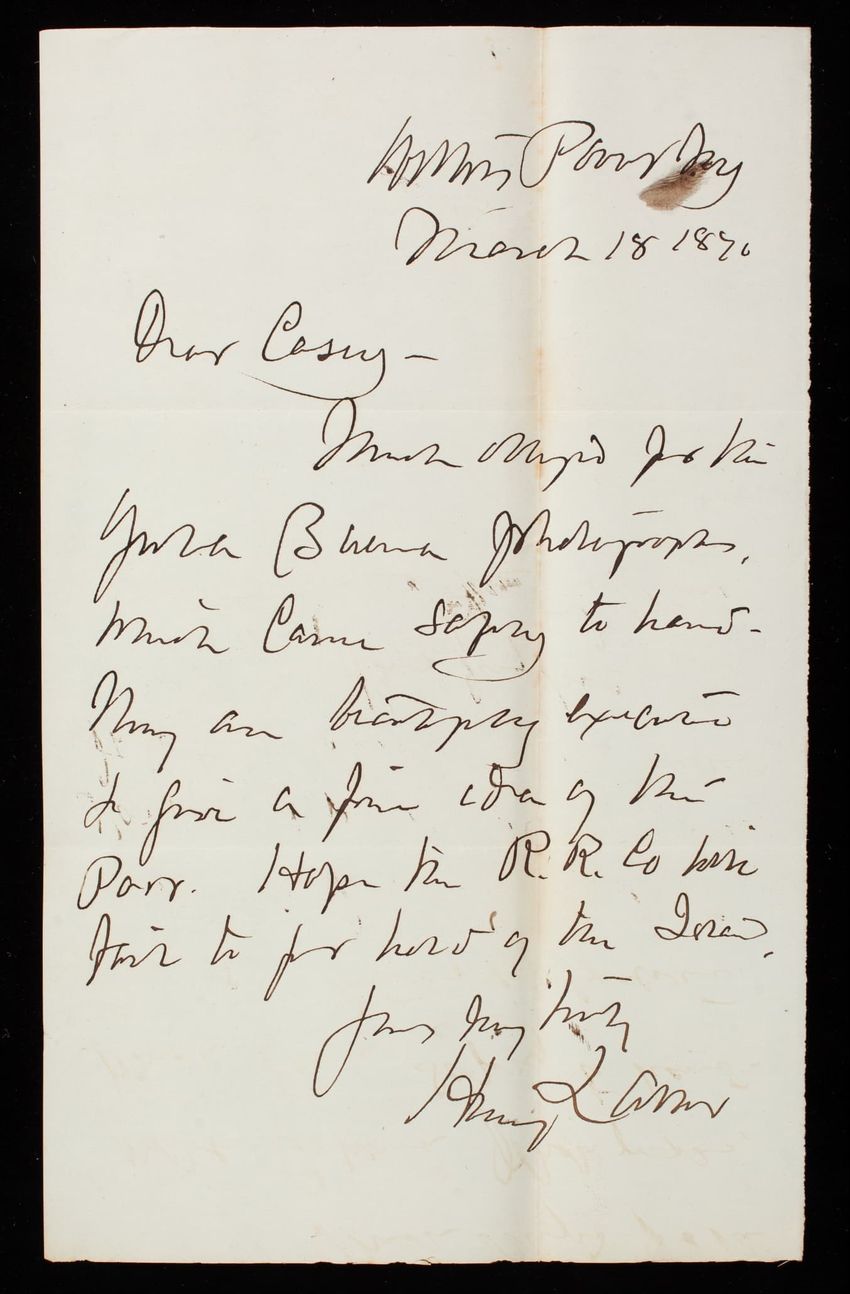 West Point, NY
March 18 1870
Dear Casey —
Much obliged for the
Yerba Buena photographs,
which came safely to hand -
They are beautifully executed
& give a fine idea of the
Place. Hope the R. R. Co will
fail to get hold of the Island,
Yours very truly
Henry L Abbot